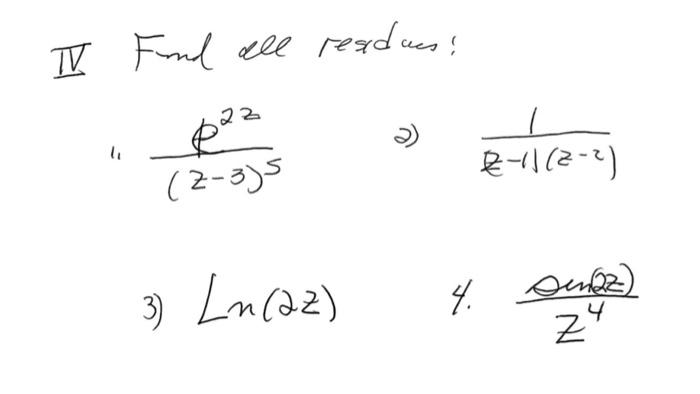 IV Find all residues:
1. e^{2z} / (z-3)^5 2) 1 / (z-1)(z-2)
3) Ln(2z) 4. sin(2z) / z^4